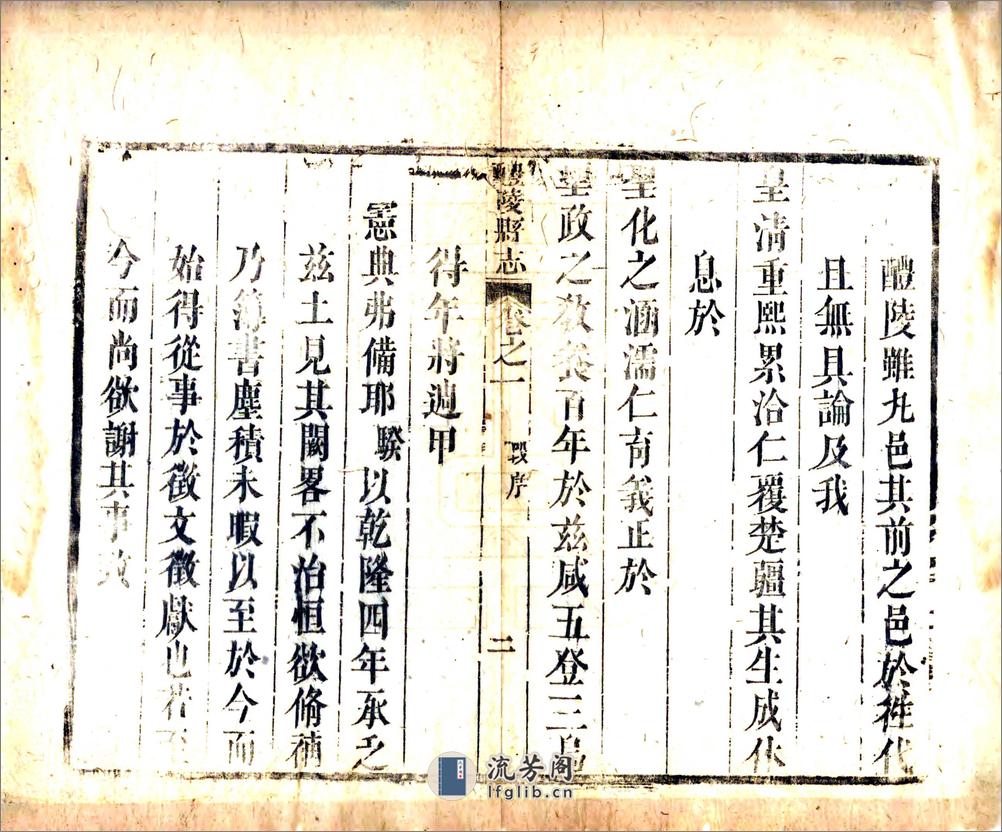 醴陵雖九邑其前之邑於徃代
且無具論及我
皇清重熙累洽仁覆楚疆其生成休
息於
聖化之涵濡仁育義正於
聖政之敎養百年於兹咸五登三
醴陵縣志 卷之一 序 二
得年將週甲
憲典弗備耶騤以乾隆四年承乏
兹土見其闕畧不治恒欲脩葺
乃簿書塵積未暇以至於今而
始得從事於徵文徵獻也若至
今而尚欲謝其事致
流芳阁
lfglib.cn